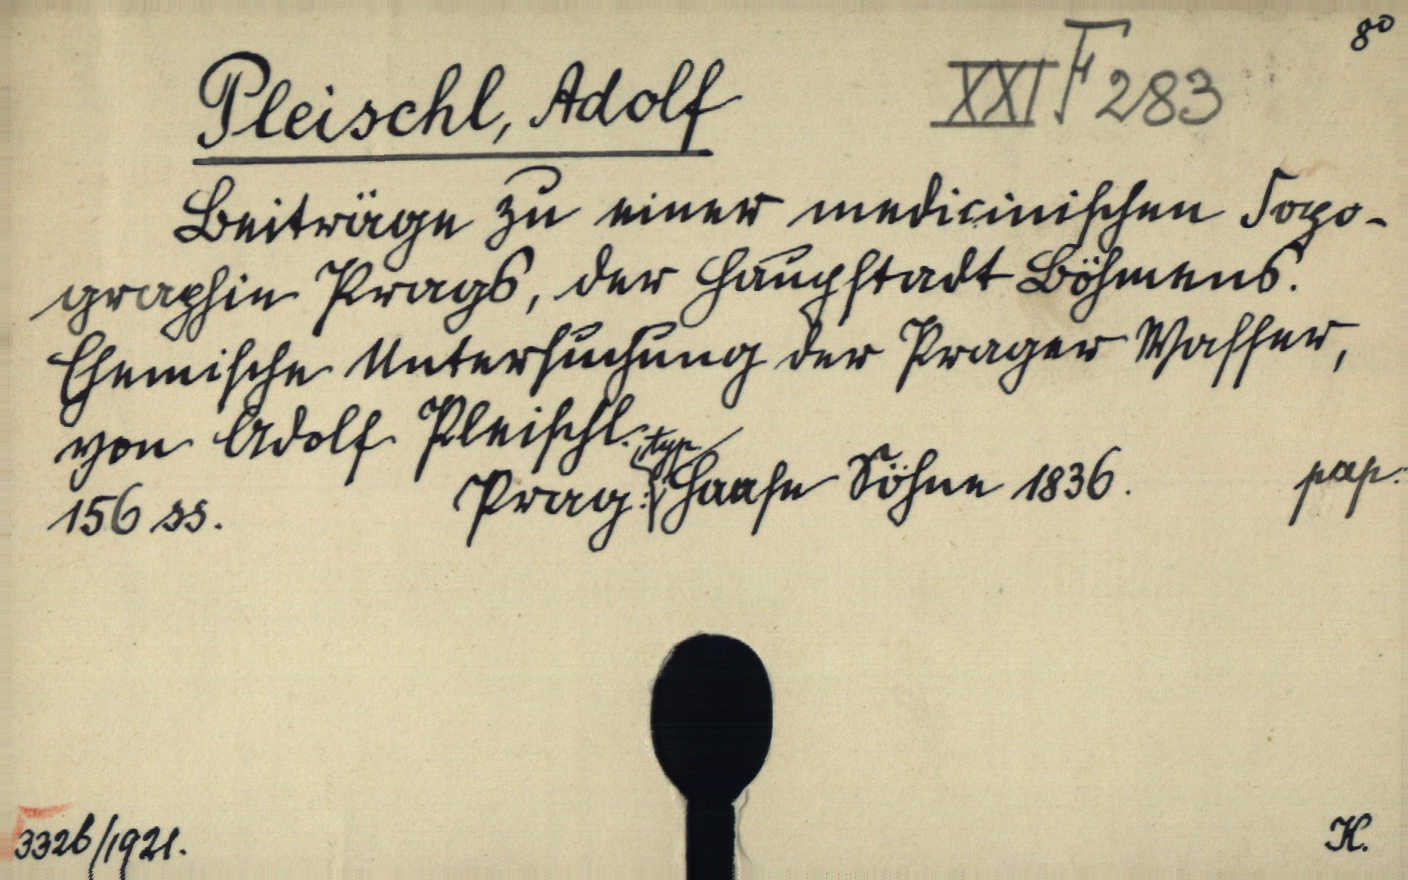 8°
Pleischl, Adolf
XXI F 283
Beiträge zu einer medicinischen Topo-
graphie Prags, der Hauptstadt Böhmens.
Chemische Untersuchung der Prager Wasser,
von Adolf Pleischl.
typ.
156 ss. Prag: Haase Söhne 1836. pap.
332b/1921. K.